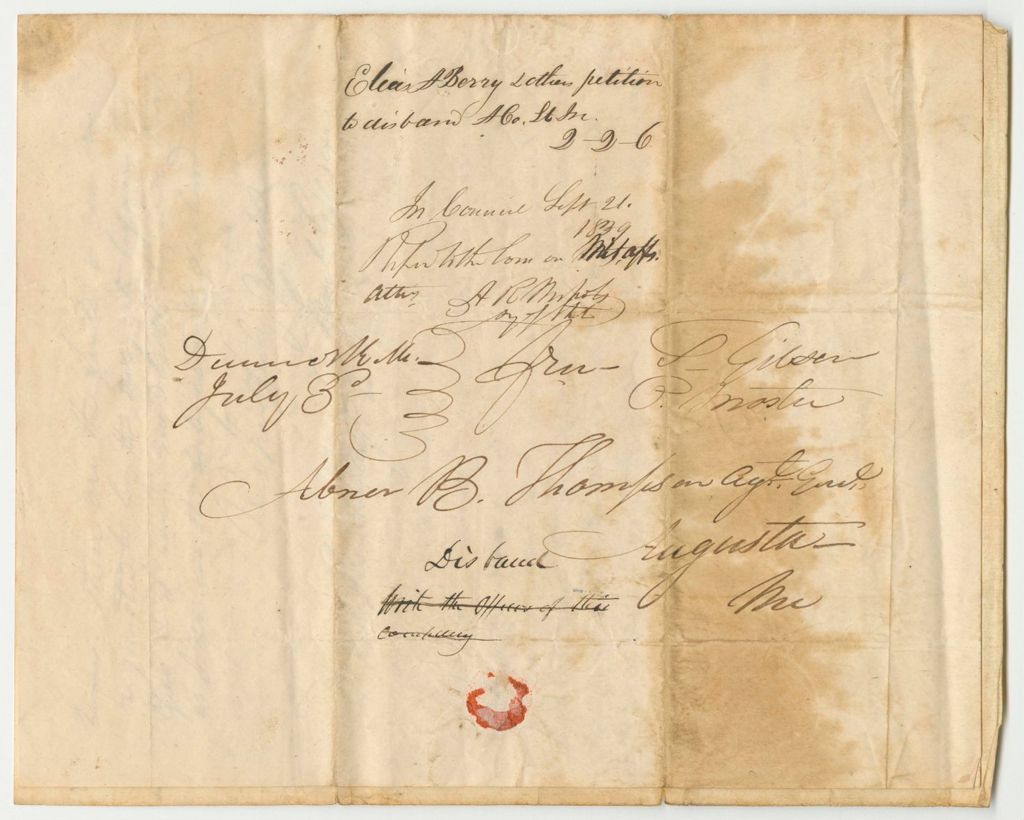 Elias A Berry & others petition
to disband A Co. Lt In.
2-2-6
In Council Sept 21.
1839
Refer to the Com on Milt. affs.
Attest, A R Nichols
Sy of State
July 3d
Free
S. Gilson
P. Master
Abner B. Thompson Agt. Genl.
Augusta
Me
Disband
Write the Officers of this
company